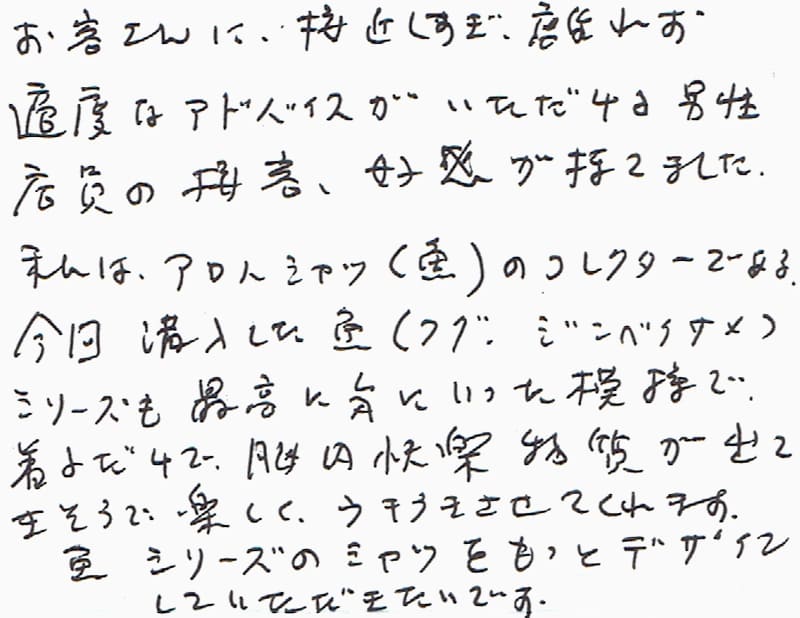 お客さんに、接近しすぎず、離れず
適度なアドバイスがいただける男性
店員の接客、好感が持てました。
私は、アロハシャツ(魚)のコレクターである。
今回購入した魚(フグ、ジンベイザメ)
シリーズも最高に気にいった模様で、
着るだけで、脳内快楽物質が出て
きそうで楽しく、ウキウキさせてくれます。
魚シリーズのシャツをもっとデザイン
していただきたいです。